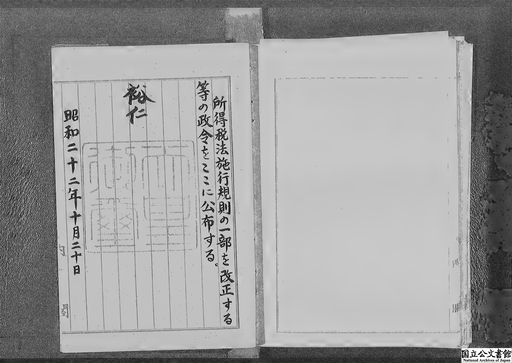 所得税法施行規則の一部を改正する
等の政令をここに公布する。
裕仁
昭和二十二年十月二十日
国立公文書館
National Archives of Japan